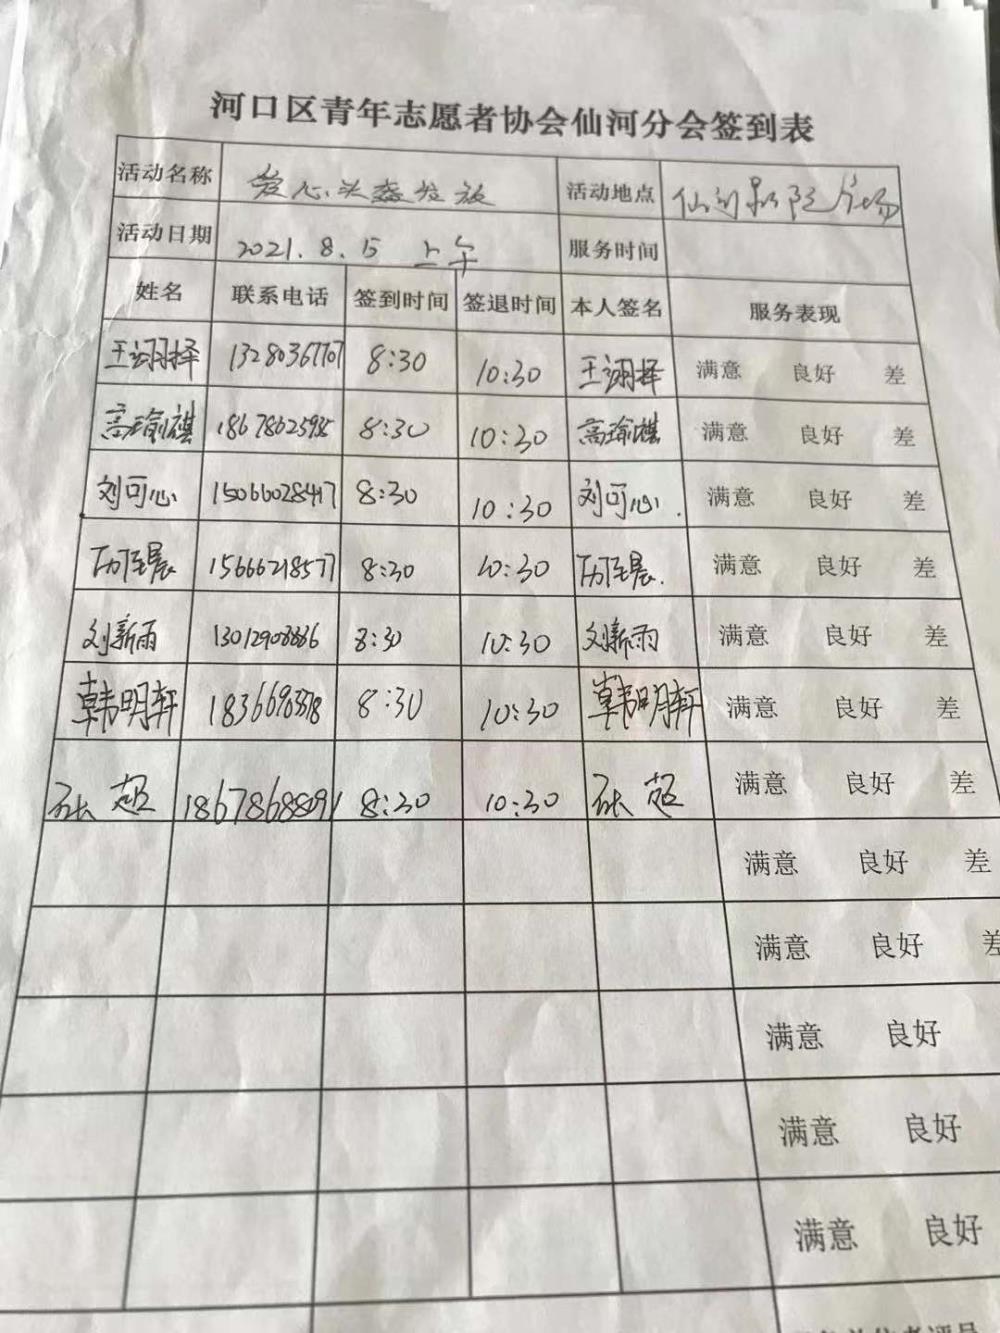 河口区青年志愿者协会仙河分会签到表
活动名称 爱心头盔发放 活动地点 仙河影院广场
活动日期 2021.8.15 上午 服务时间
姓名 联系电话 签到时间 签退时间 本人签名 服务表现
王翊择 13280367707 8:30 10:30 王翊择 满意 良好 差
高瑜祺 18678625935 8:30 10:30 高瑜祺 满意 良好 差
刘可心 15066028417 8:30 10:30 刘可心. 满意 良好 差
15666218577 8:30 10:30 满意 良好 差
刘新雨 8:30 10:30 刘新雨 满意 良好 差
韩明轩 8:30 10:30 韩明轩 满意 良好 差
张超 18678688091 8:30 10:30 张超 满意 良好 差
满意 良好 差
满意 良好 差
满意 良好
满意 良好
满意 良好